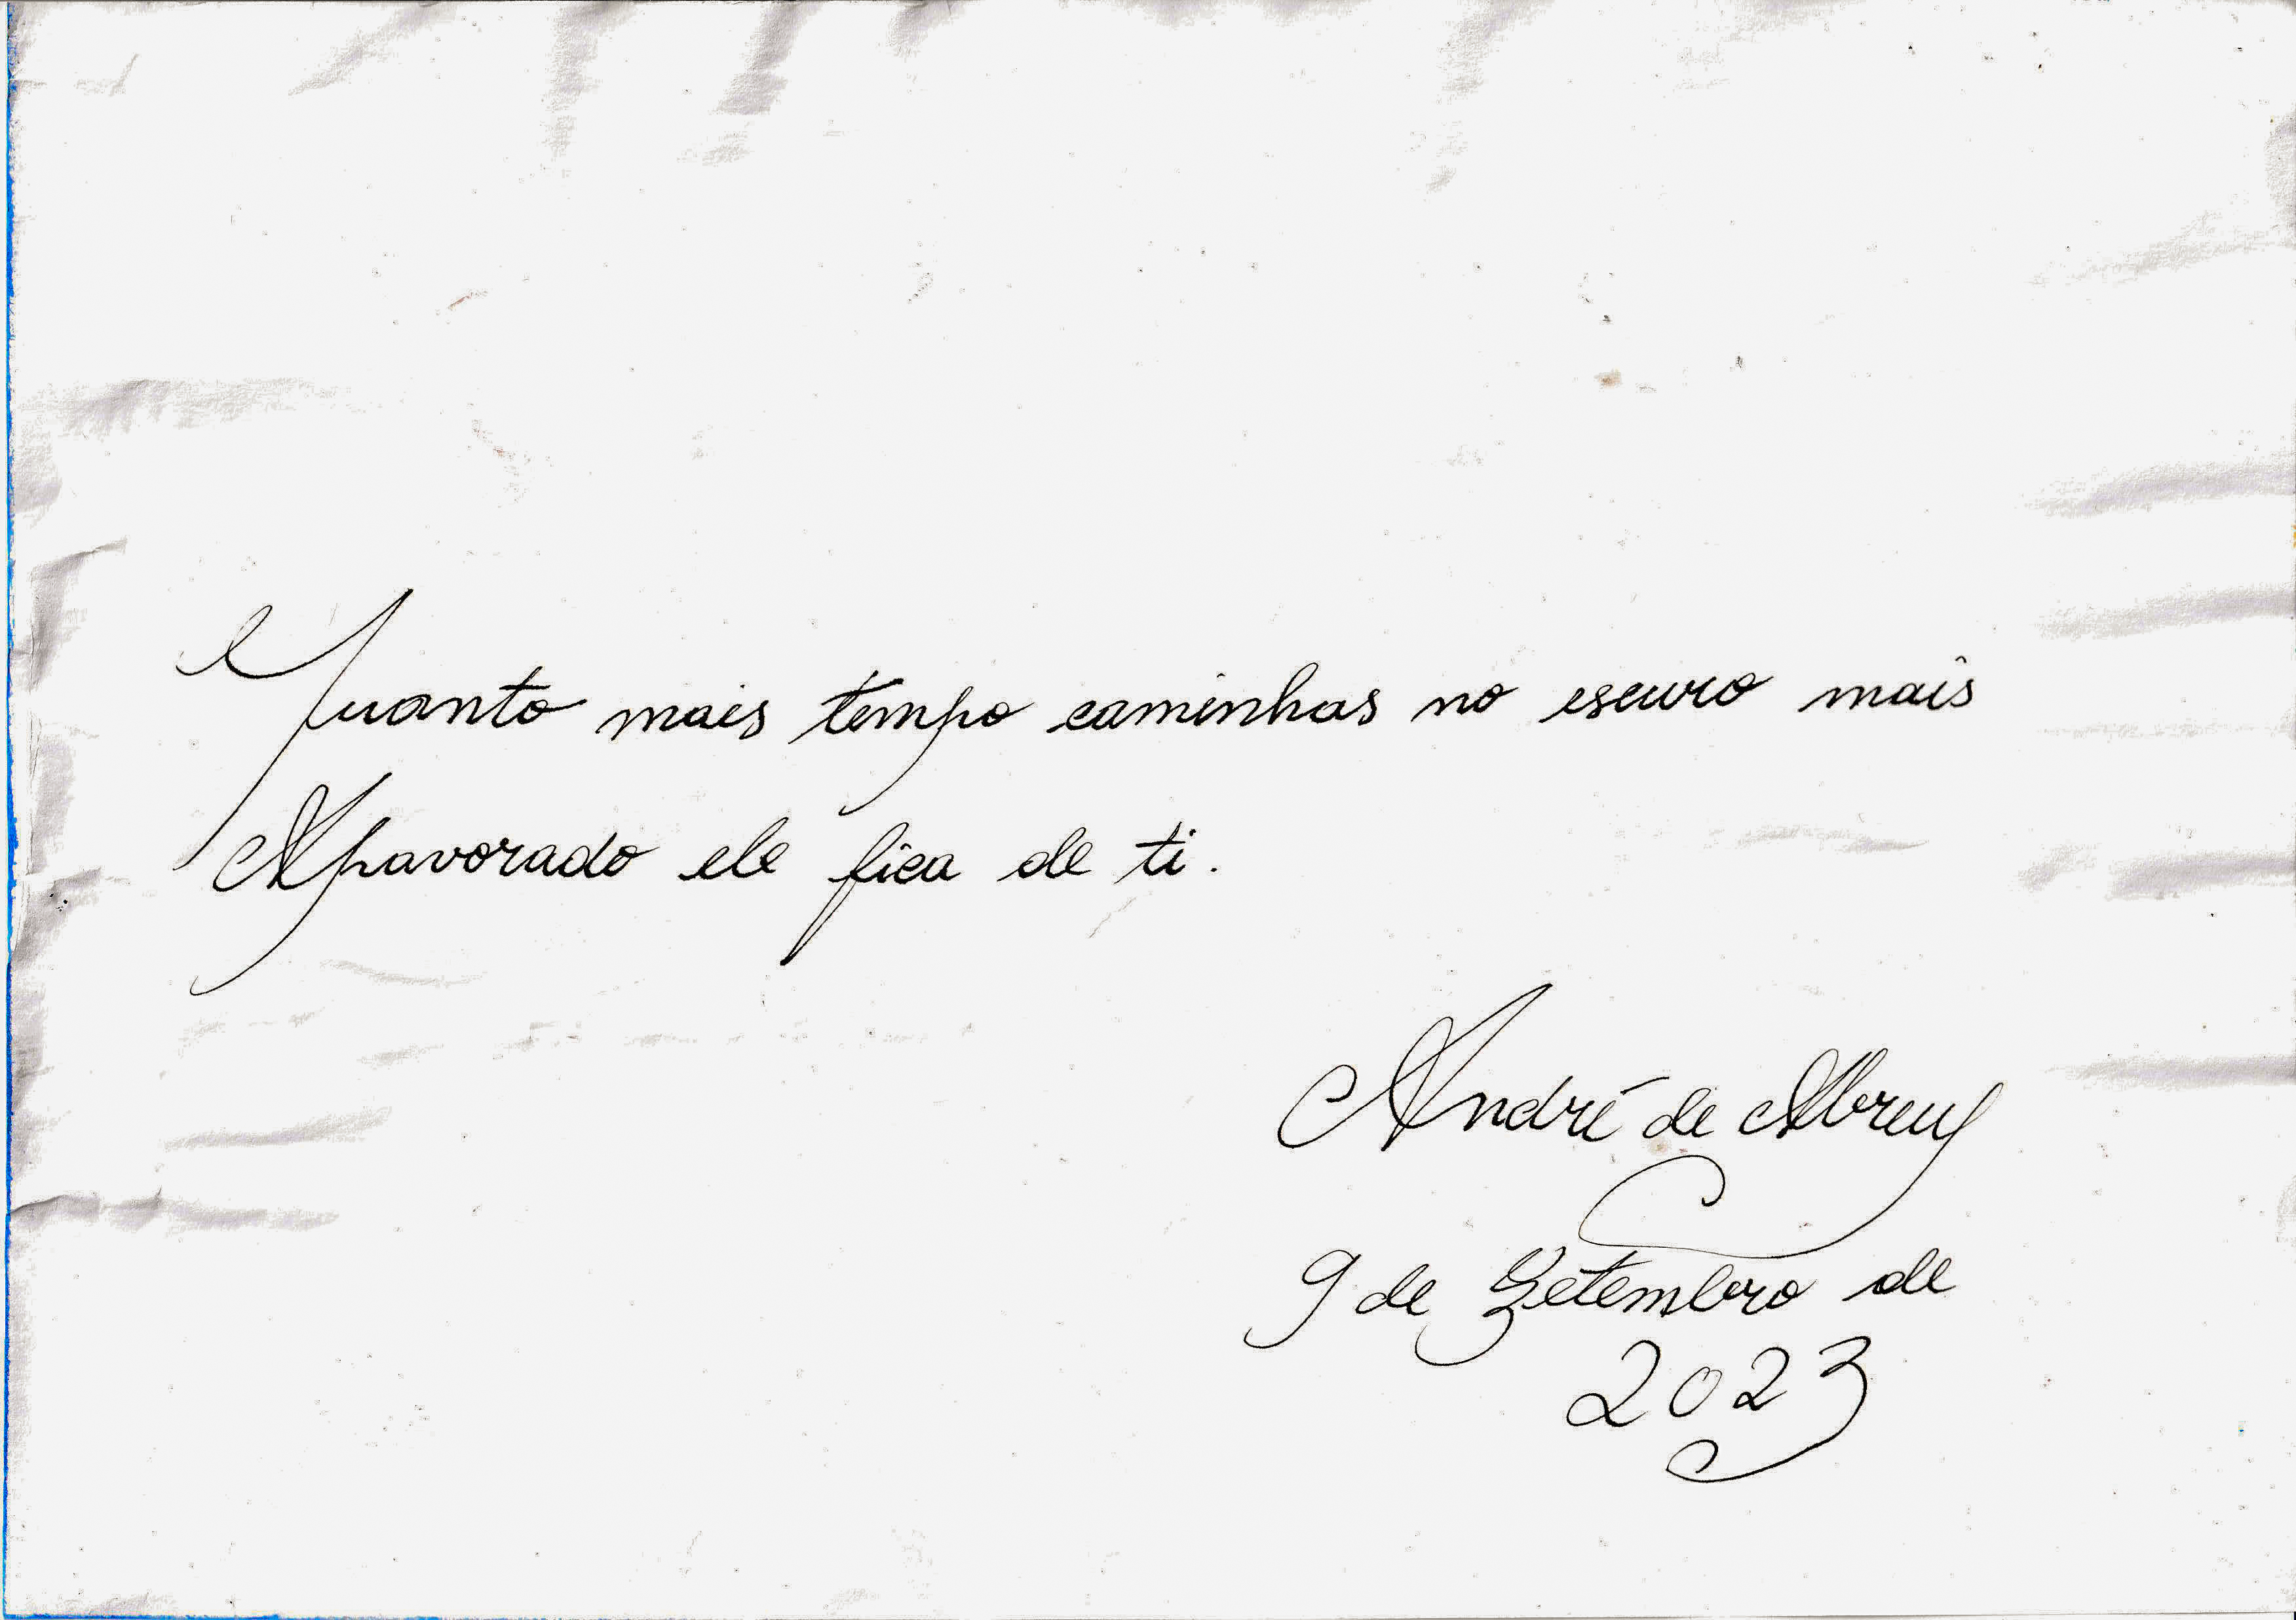 Quanto mais tempo caminhas no escuro mais
Apavorado ele fica de ti.
André de Abreu
9 de Setembro de
2023